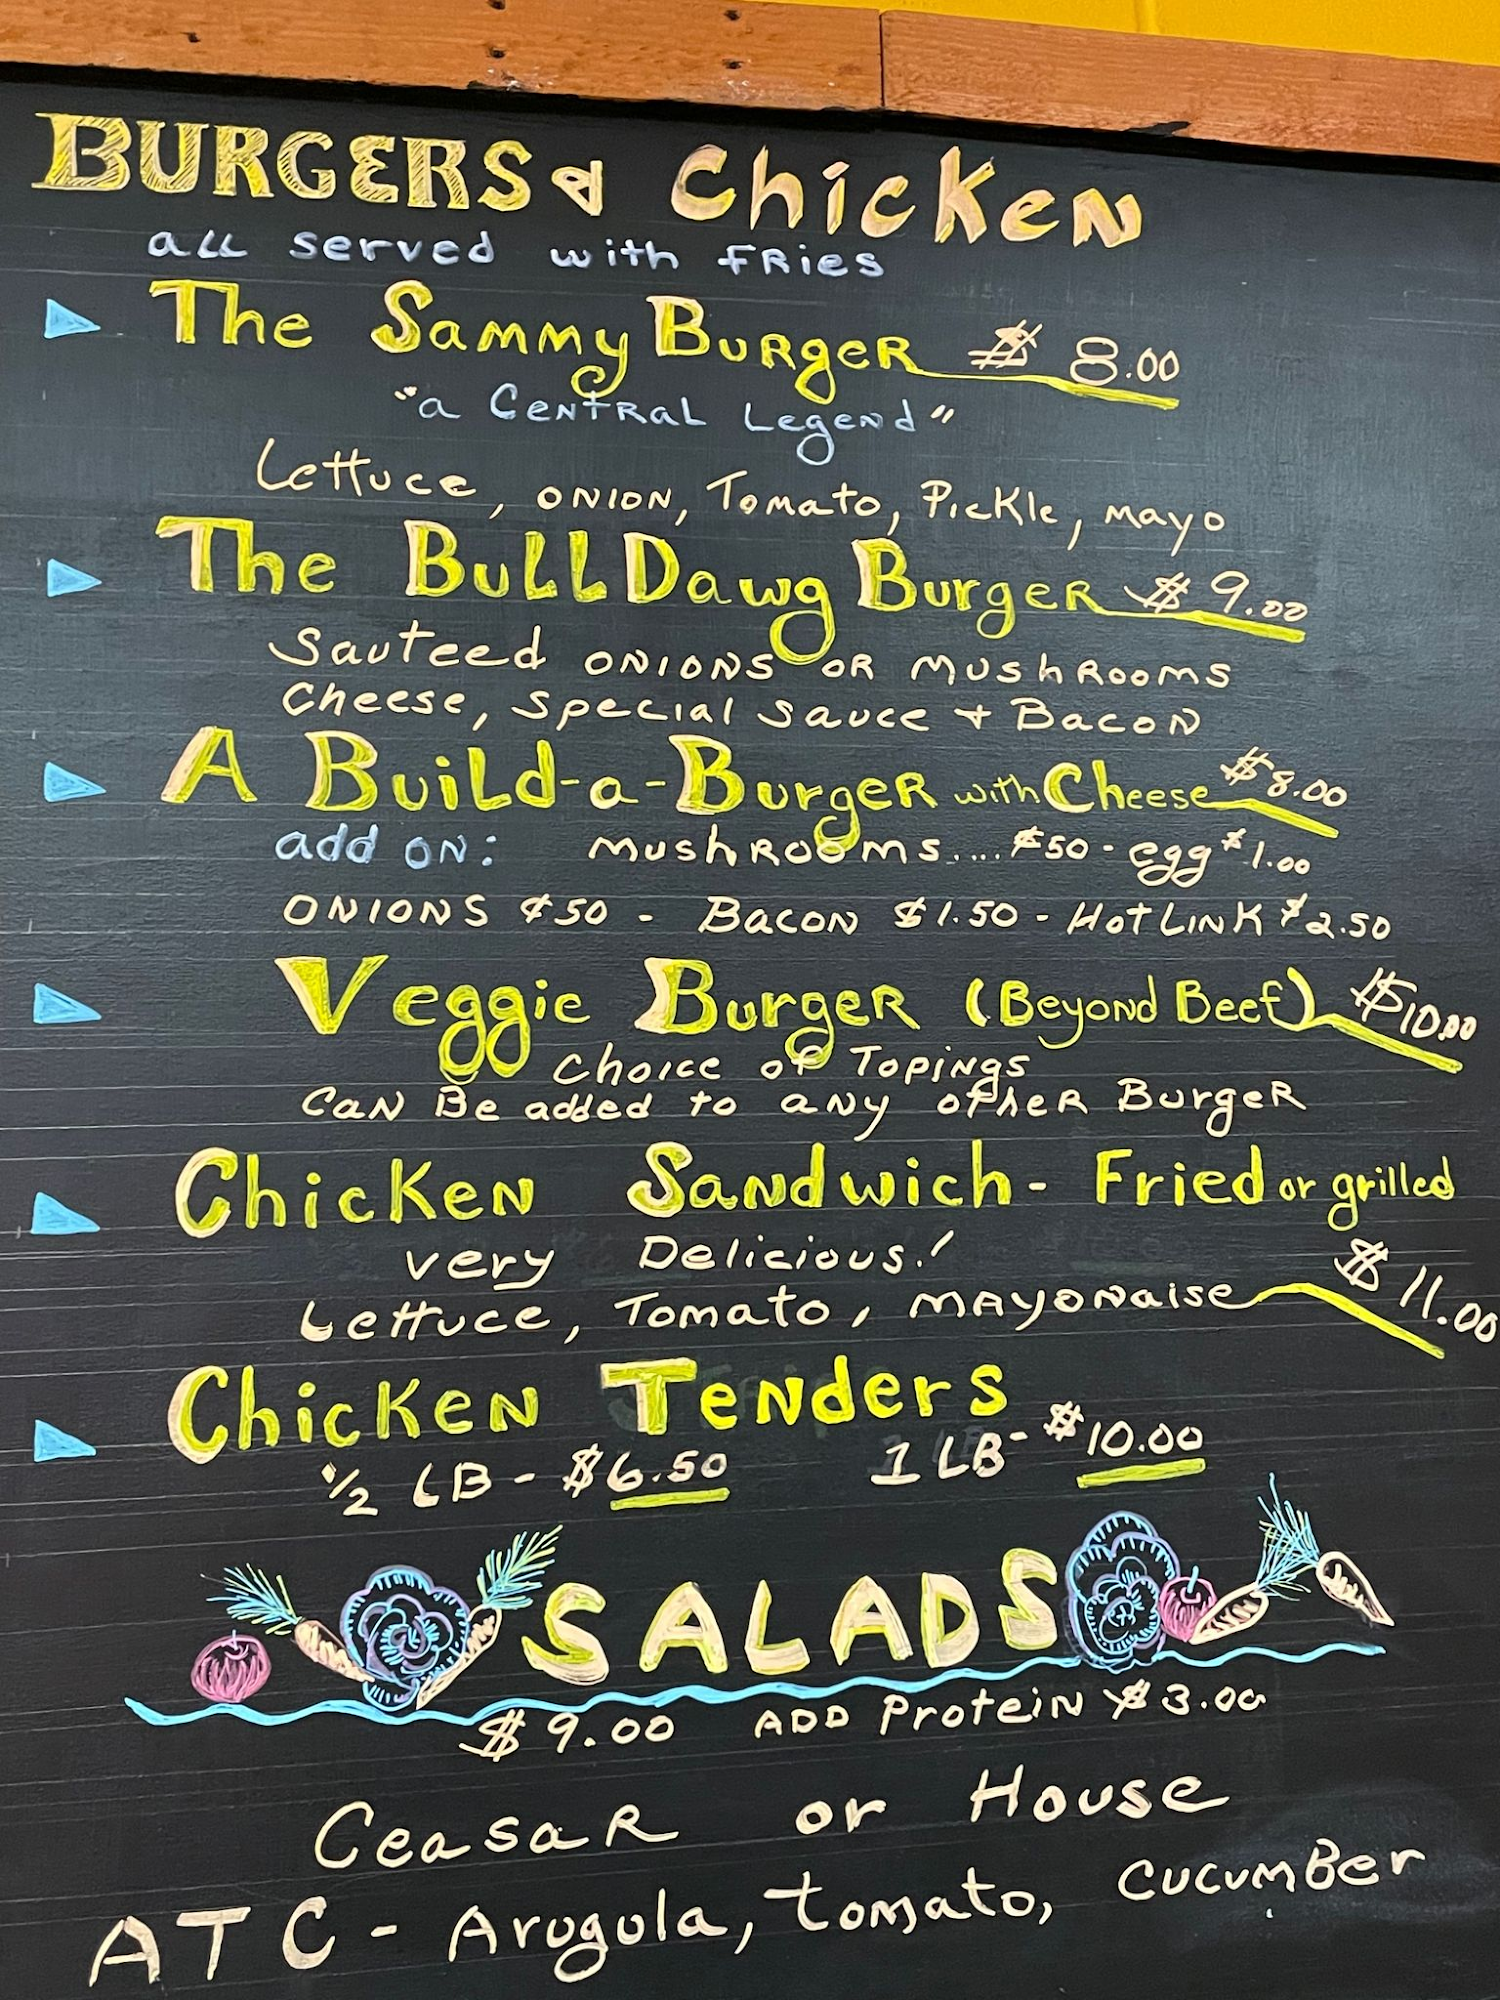 BURGERS & Chicken
all served with fries
The Sammy Burger $ 8.00
"a Central Legend"
Lettuce, onion, Tomato, Pickle, mayo
The BullDawg Burger $ 9.00
Sauteed onions or mushrooms
Cheese, special sauce + Bacon
A Build-a-Burger with Cheese $8.00
add on: mushrooms.... $50 - egg $1.00
onions $50 - Bacon $1.50 - Hot Link $2.50
Veggie Burger (Beyond Beef) $10.00
Choice of Topings
Can Be added to any other Burger
Chicken Sandwich - Fried or grilled
very Delicious!
Lettuce, Tomato, mayonaise $11.00
Chicken Tenders
1/2 LB - $6.50 1 LB - $10.00
SALADS
$9.00 ADD Protein $3.00
Ceasar or House
ATC - Arugula, tomato, cucumber